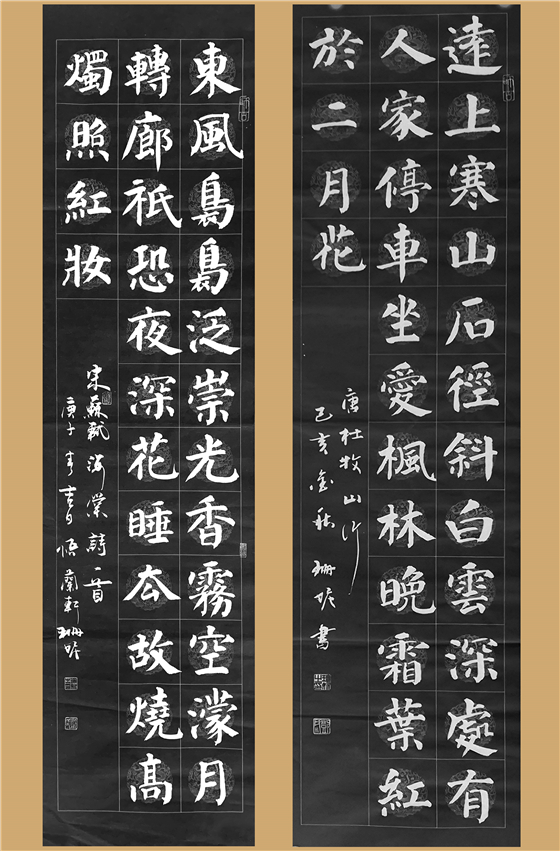 遠上寒山石徑斜白雲深處有
人家停車坐愛楓林晚霜葉紅
於二月花
唐杜牧山行
己亥金秋 珊書
東風裊裊泛崇光香霧空濛月
轉廊祇恐夜深花睡去故燒高
燭照紅妝
宋蘇軾海棠詩一首
庚子春吉日悟蘭軒珊